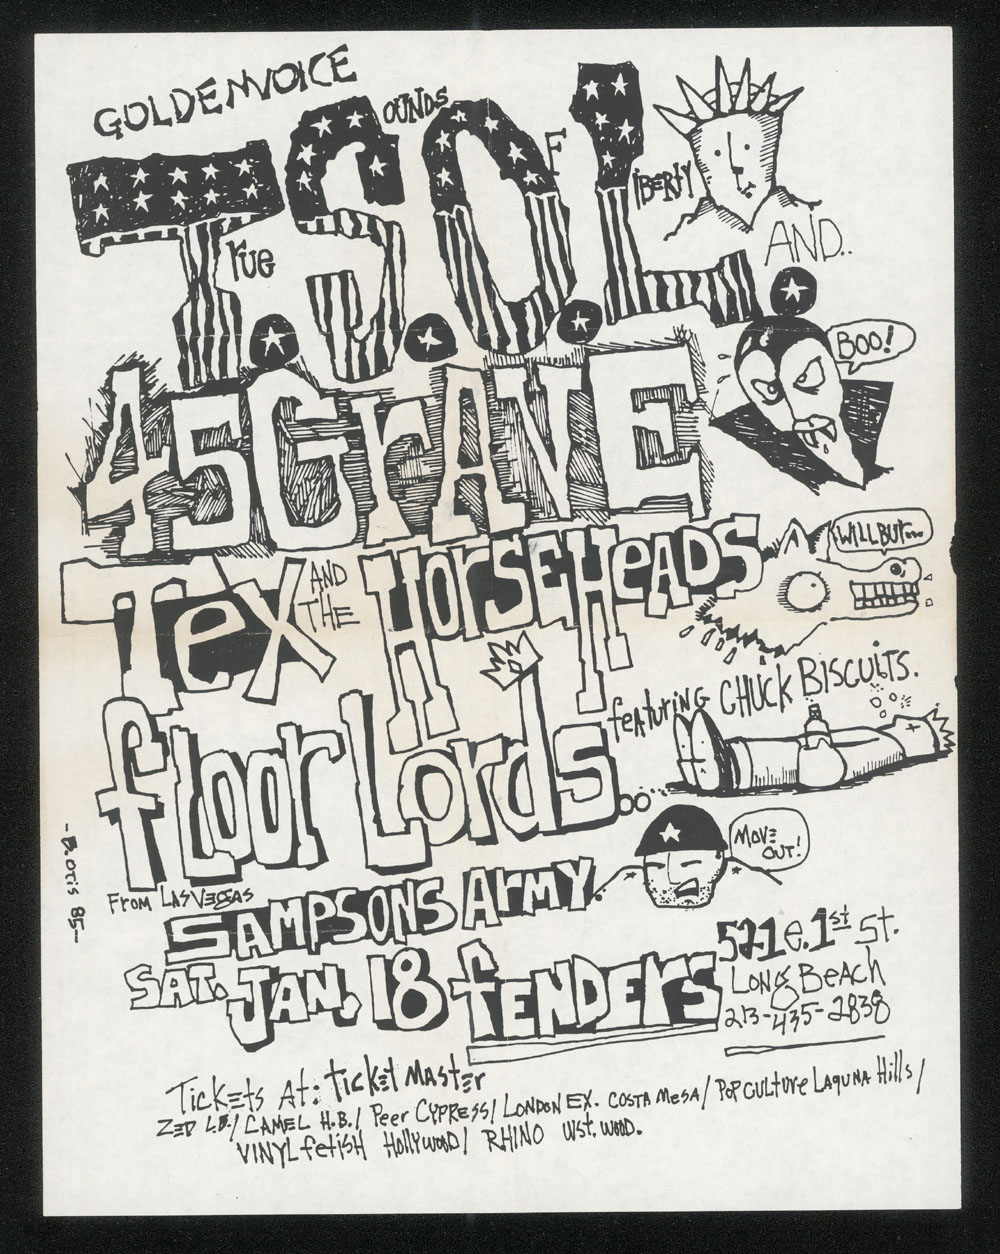 GOLDENVOICE
T.S.O.L.
rue
OUNDS
F
IBERTY
AND..
BOO!
45 GrAVE
Tex AND THE HorsEHeADS
WILLBUr...
floor Lords...
featuring CHUCK BISCUITS.
MOVE OUT!
FROM LAS VEGAS
SAMPSONS ArMY.
SAT. JAN. 18 feNDErS
521 e. 1st St.
LONg BEACH
213-435-2838
TickETS At: ticket MASTEr
ZED L.B./ CAMEL H.B./ Peer CYPRESS/ LONDON EX. COSTA MESA/ POP CULTUre LAGUNA Hills/
VINYL fetiSH HollyWOOD/ RHINO Wst. WOOD.
-B. OTIS 85-